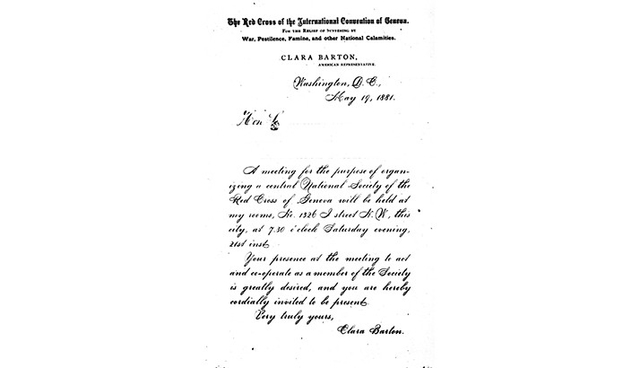 The Red Cross of the International Convention of Geneva.
For the Relief of Suffering by
War, Pestilence, Famine, and other National Calamities.
CLARA BARTON,
AMERICAN REPRESENTATIVE.
Washington, D. C.,
May 19, 1881.
Hon
A meeting for the purpose of organ-
izing a central National Society of the
Red Cross of Geneva will be held at
my rooms, No. 1326 I street N. W., this
city, at 7.30 o'clock Saturday evening,
21st inst.
Your presence at the meeting to act
and co-operate as a member of the Society
is greatly desired, and you are hereby
cordially invited to be present.
Very truly yours,
Clara Barton.